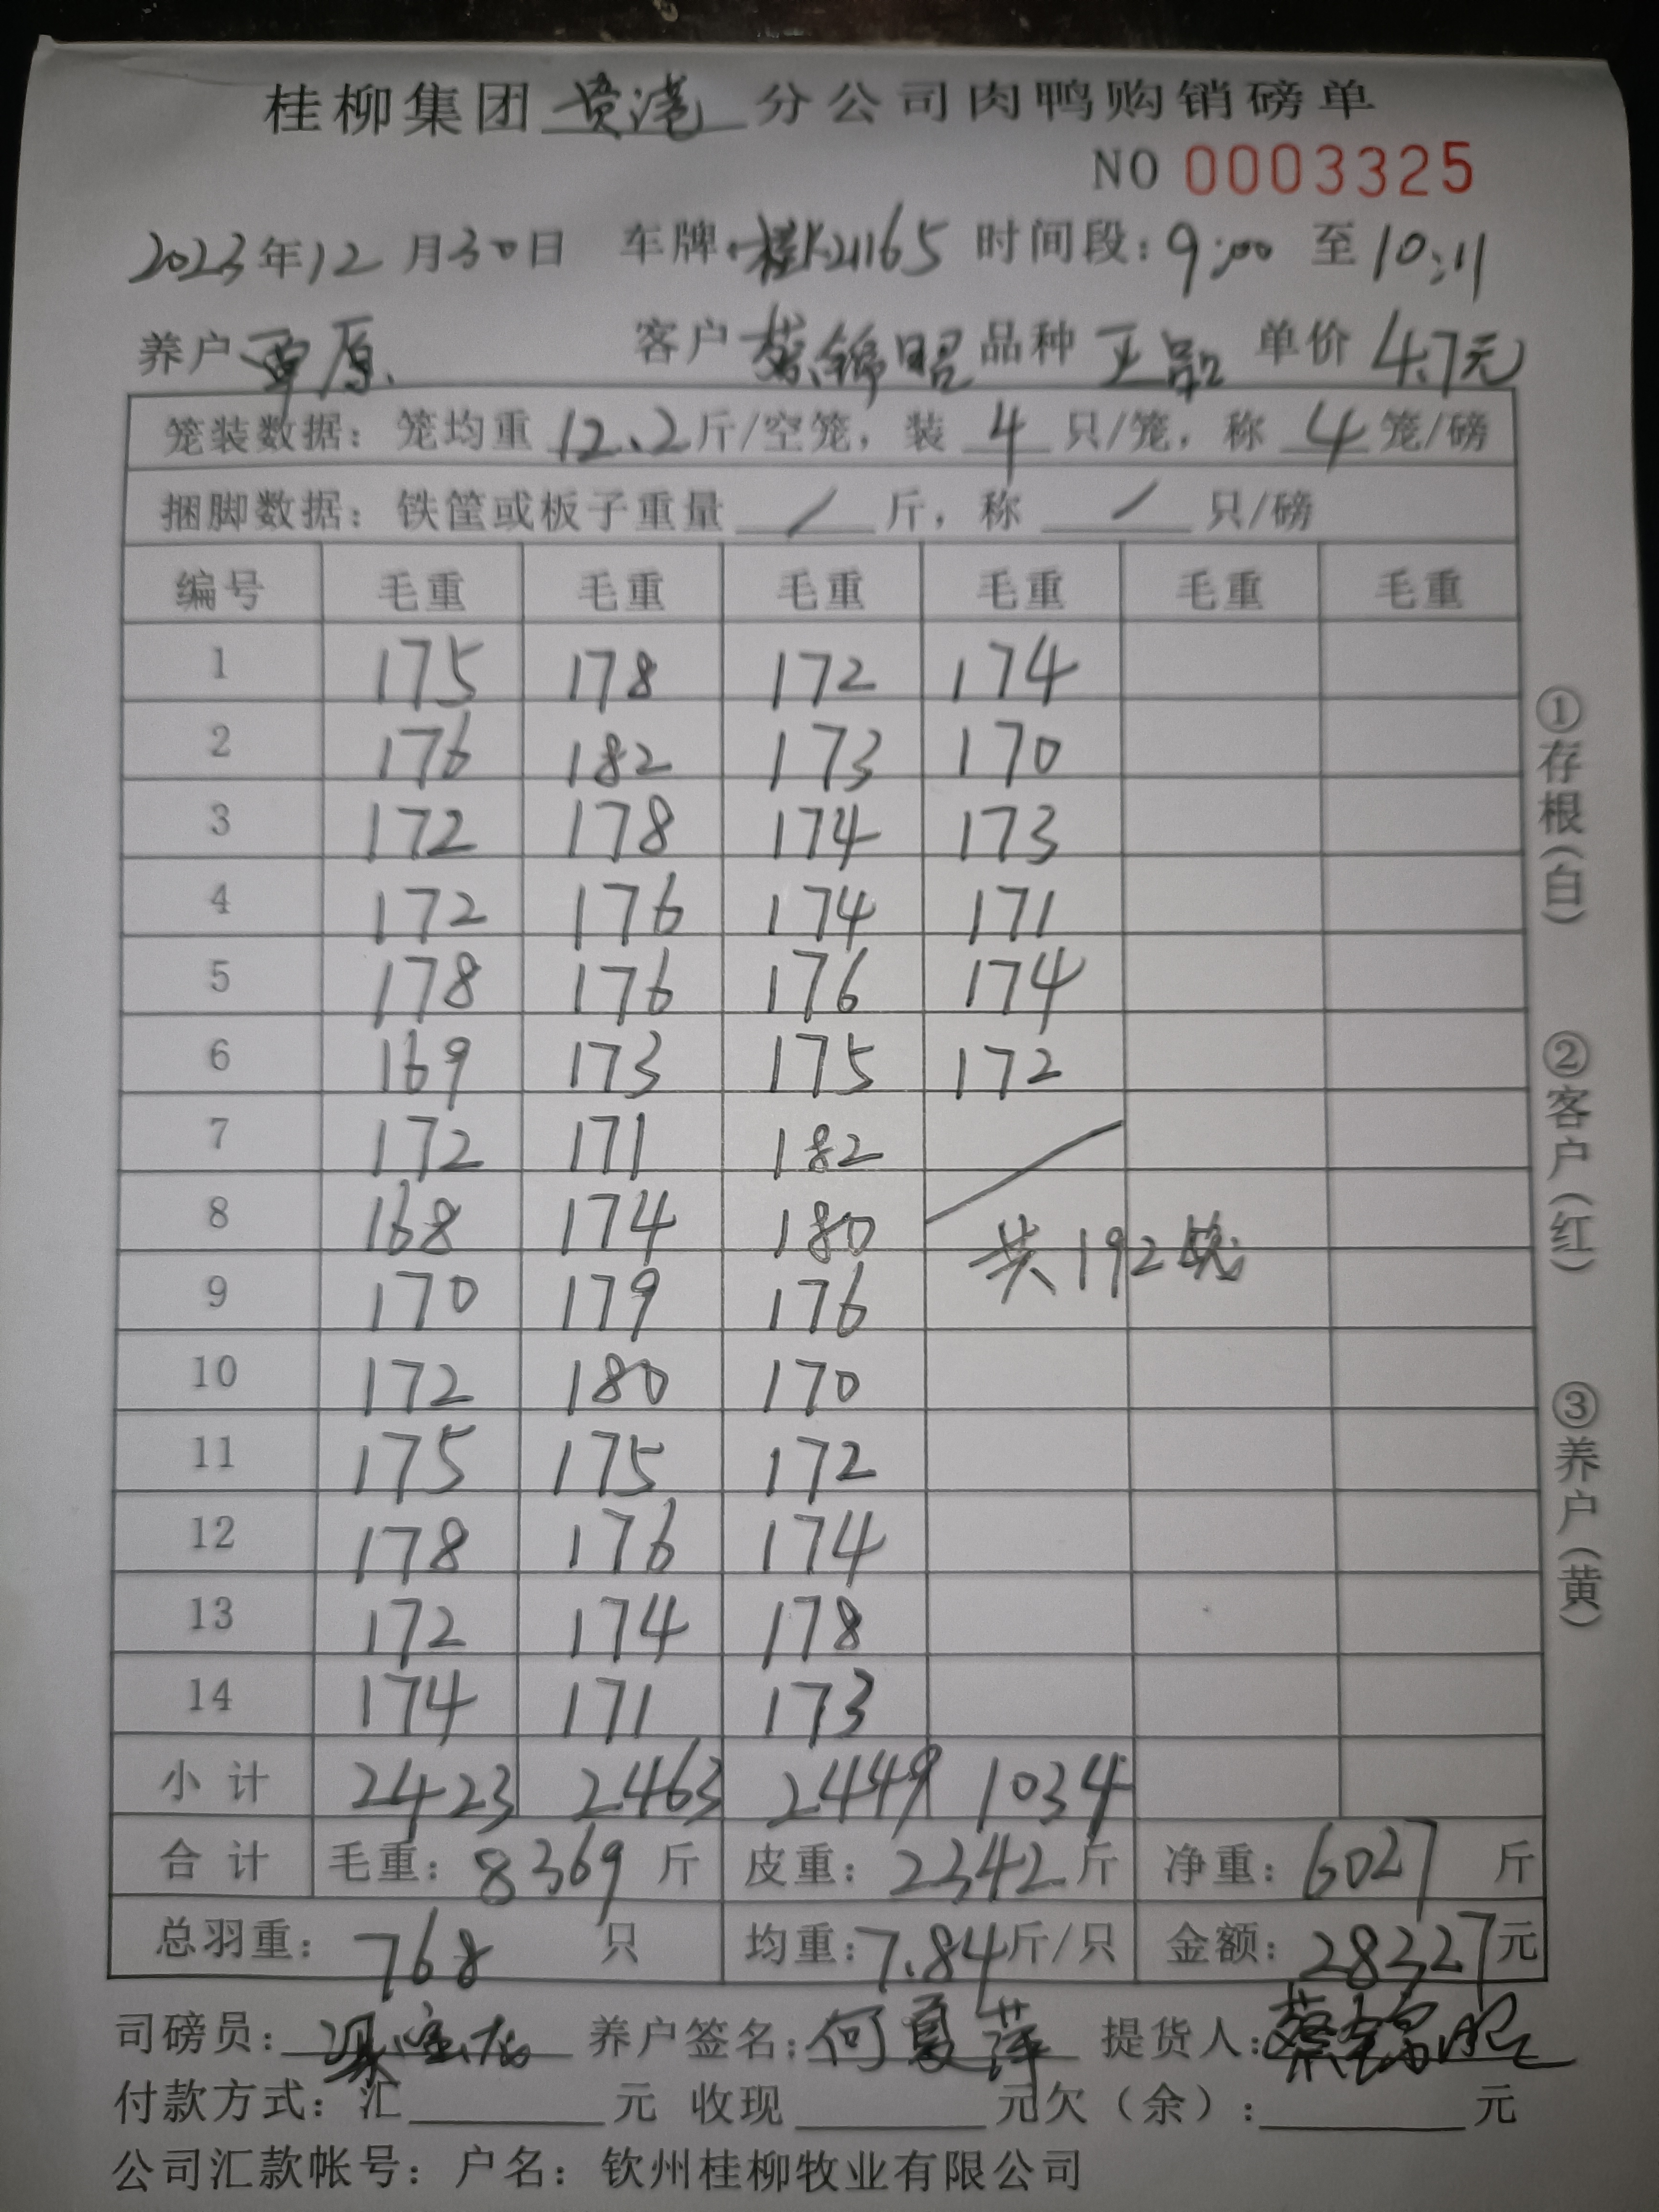 桂柳集团 贵港 分公司肉鸭购销磅单
NO 0003325
2023年12月30日 车牌:桂K21165 时间段:9:00 至10:11
养户 覃原 客户 蔡锦昭 品种 王品 单价 4.7元
笼装数据:笼均重 12.2斤/空笼,装 4 只/笼,称 4 笼/磅
捆脚数据:铁筐或板子重量 / 斤,称 / 只/磅
编号 毛重 毛重 毛重 毛重 毛重 毛重
1 175 178 172 174
2 176 182 173 170
3 172 178 174 173
4 172 176 174 171
5 178 176 176 174
6 169 173 175 172
7 172 171 182
8 168 174 180
共192笼
9 170 179 176
10 172 180 170
11 175 175 172
12 178 176 174
13 172 174 178
14 174 171 173
小计 2423 2463 2449 1034
合计 毛重:8369 斤 皮重:2342斤 净重:6027 斤
总羽重:768 只 均重:7.84斤/只 金额:28327元
司磅员: 养户签名:何夏萍 提货人:蔡锦昭
付款方式:汇 元 收现 元欠(余): 元
公司汇款帐号:户名:钦州桂柳牧业有限公司
①存根(白)
②客户(红)
③养户(黄)